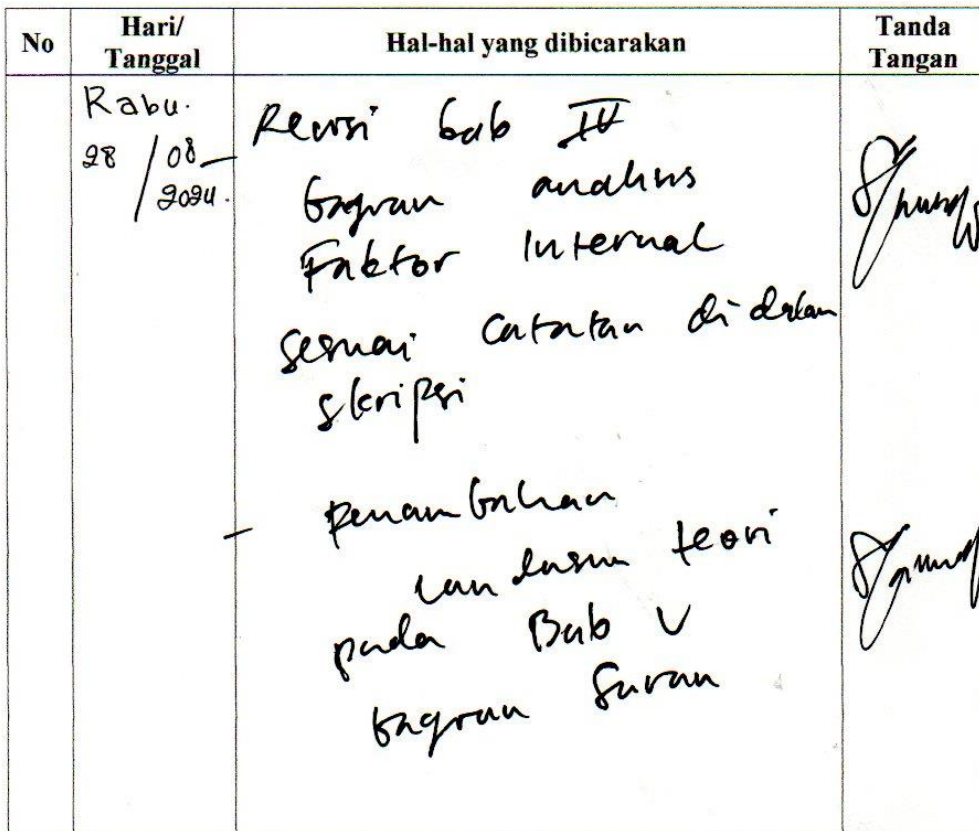 No
Hari/
Tanggal
Hal-hal yang dibicarakan
Tanda
Tangan
Rabu.
28 / 08
2024.
- Revisi bab IV
bagian analisis
Faktor Internal
sesuai catatan di dalam
skripsi
- penambahan
landasan teori
pada Bab V
bagian Saran